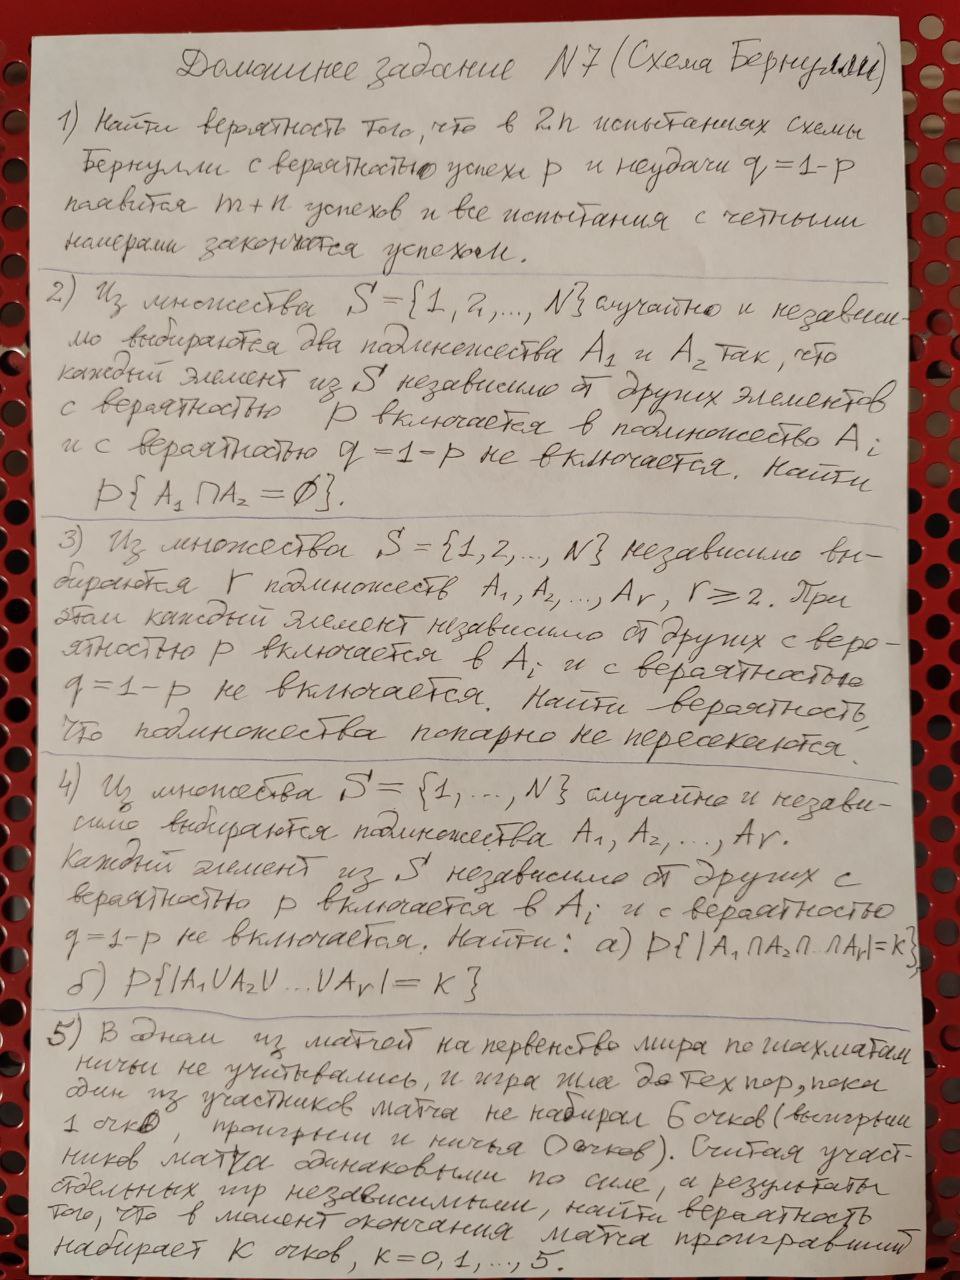 Домашнее задание N7 (Схема Бернулли)
1) Найти вероятность того, что в 2n испытаниях схемы
Бернулли с вероятностью успеха p и неудачи q=1-p
появится m+n успехов и все испытания с четными
номерами закончатся успехом.
2) Из множества S={1,2,..., N} случайно и независи-
мо выбираются два подмножества A₁ и A₂ так, что
каждый элемент из S независимо от других элементов
с вероятностью p включается в подмножество Aᵢ
и с вероятностью q=1-p не включается. Найти
P{A₁∩A₂=∅}.
3) Из множества S={1,2,..., N} независимо вы-
бираются r подмножеств A₁, A₂, ..., Aᵣ, r⩾2. При
этом каждый элемент независимо от других с веро-
ятностью p включается в Aᵢ и с вероятностью
q=1-p не включается. Найти вероятность,
что подмножества попарно не пересекаются.
4) Из множества S={1,..., N} случайно и незави-
симо выбираются подмножества A₁, A₂, ..., Aᵣ.
Каждый элемент из S независимо от других с
вероятностью p включается в Aᵢ и с вероятностью
q=1-p не включается. Найти: а) P{|A₁∩A₂∩...∩Aᵣ|=k},
б) P{|A₁∪A₂∪...∪Aᵣ|=k}
5) В одном из матчей на первенство мира по шахматам
ничьи не учитывались, и игра шла до тех пор, пока
один из участников матча не набирал 6 очков (выигрыш
1 очко, проигрыш и ничья 0 очков). Считая участ-
ников матча одинаковыми по силе, а результаты
отдельных игр независимыми, найти вероятность
того, что в момент окончания матча проигравший
набирает k очков, k=0,1,...,5.